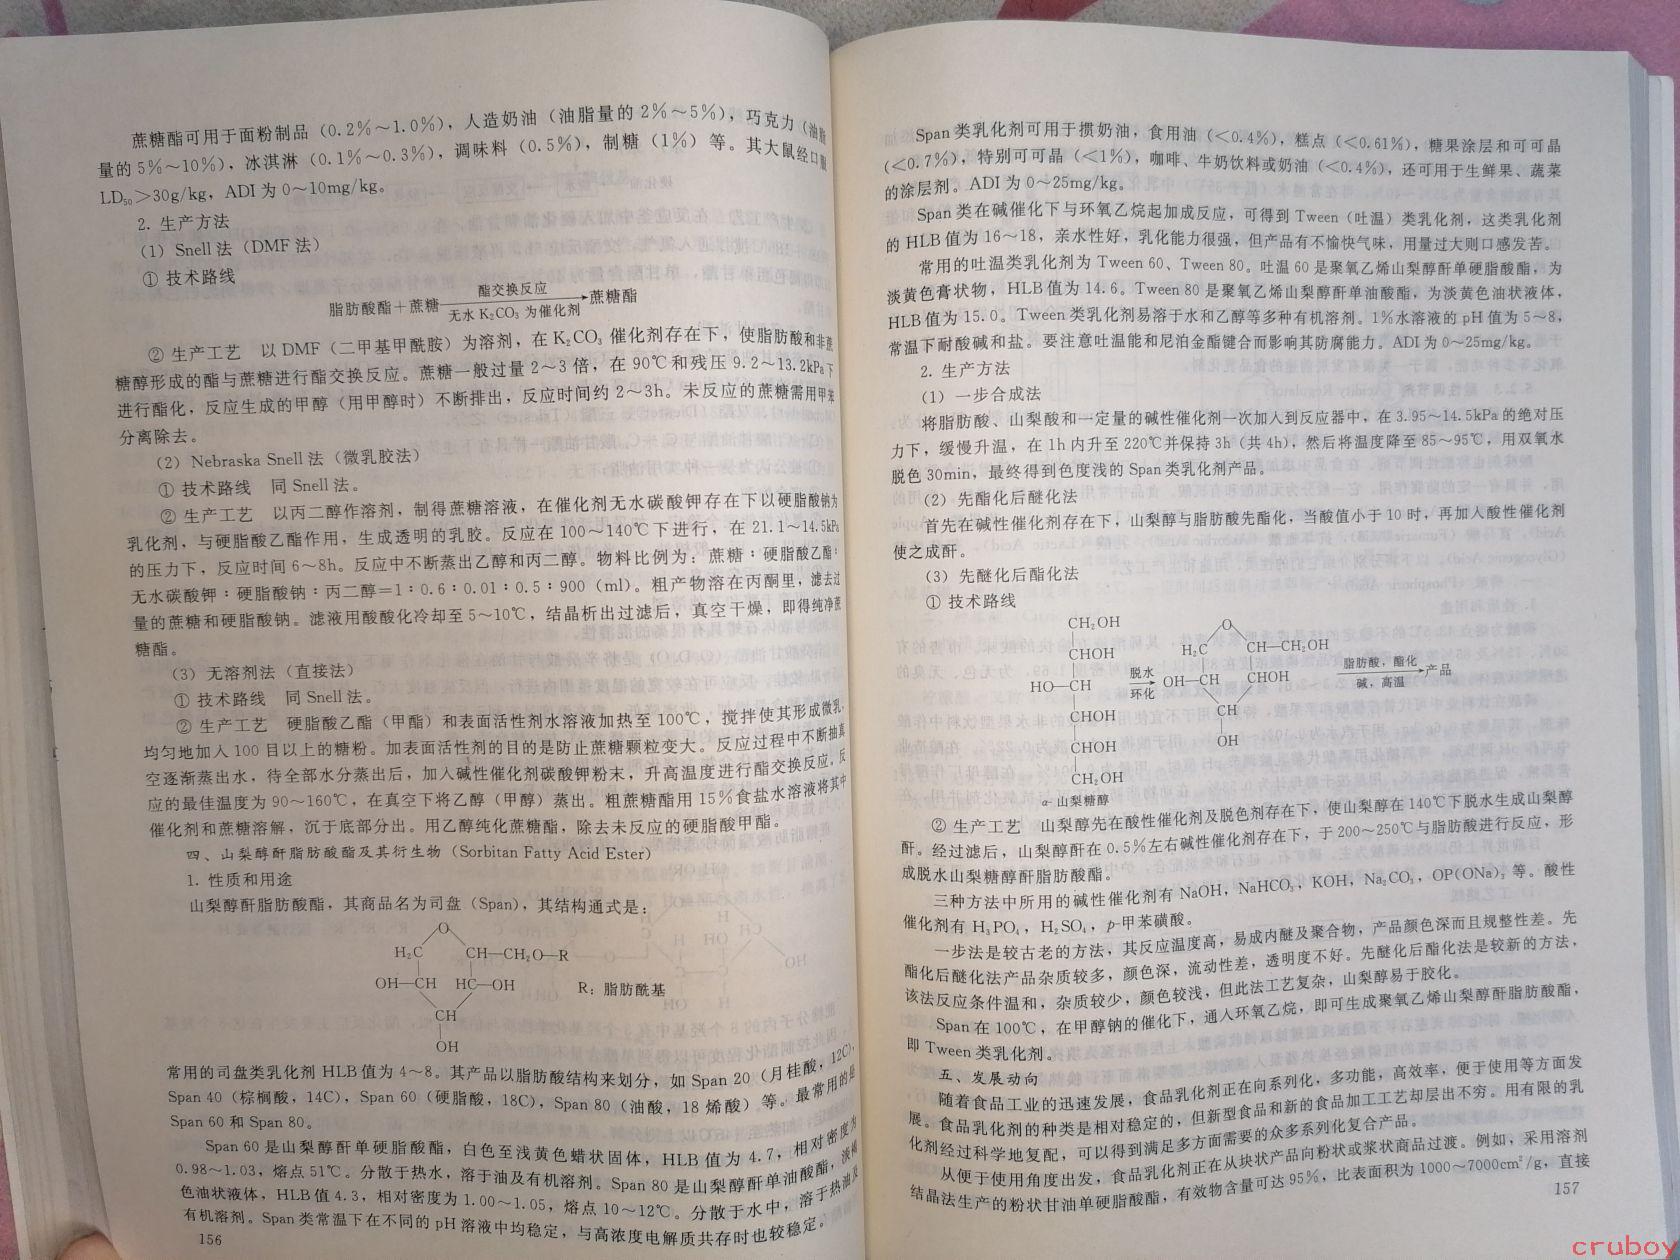 蔗糖酯可用于面粉制品（0.2%～1.0%），人造奶油（油脂量的 2%～5%），巧克力（油脂
量的 5%～10%），冰淇淋（0.1%～0.3%），调味料（0.5%），制糖（1%）等。其大鼠经口服
LD₅₀＞30g/kg，ADI 为 0～10mg/kg。
2. 生产方法
（1）Snell 法（DMF 法）
① 技术路线
脂肪酸酯＋蔗糖 酯交换反应 无水 K₂CO₃ 为催化剂 →蔗糖酯
② 生产工艺 以 DMF（二甲基甲酰胺）为溶剂，在 K₂CO₃ 催化剂存在下，使脂肪酸和非蔗
糖醇形成的酯与蔗糖进行酯交换反应。蔗糖一般过量 2～3 倍，在 90℃和残压 9.2～13.2kPa下
进行酯化，反应生成的甲醇（用甲醇时）不断排出，反应时间约 2～3h。未反应的蔗糖需用甲苯
分离除去。
（2）Nebraska Snell 法（微乳胶法）
① 技术路线 同 Snell 法。
② 生产工艺 以丙二醇作溶剂，制得蔗糖溶液，在催化剂无水碳酸钾存在下以硬脂酸钠为
乳化剂，与硬脂酸乙酯作用，生成透明的乳胶。反应在 100～140℃下进行，在 21.1～14.5kPa
的压力下，反应时间 6～8h。反应中不断蒸出乙醇和丙二醇。物料比例为：蔗糖∶硬脂酸乙酯∶
无水碳酸钾∶硬脂酸钠∶丙二醇＝1∶0.6∶0.01∶0.5∶900（ml）。粗产物溶在丙酮里，滤去过
量的蔗糖和硬脂酸钠。滤液用酸酸化冷却至 5～10℃，结晶析出过滤后，真空干燥，即得纯净蔗
糖酯。
（3）无溶剂法（直接法）
① 技术路线 同 Snell 法。
② 生产工艺 硬脂酸乙酯（甲酯）和表面活性剂水溶液加热至 100℃，搅拌使其形成微乳，
均匀地加入 100 目以上的糖粉。加表面活性剂的目的是防止蔗糖颗粒变大。反应过程中不断抽真
空逐渐蒸出水，待全部水分蒸出后，加入碱性催化剂碳酸钾粉末，升高温度进行酯交换反应，反
应的最佳温度为 90～160℃，在真空下将乙醇（甲醇）蒸出。粗蔗糖酯用 15%食盐水溶液将其中
催化剂和蔗糖溶解，沉于底部分出。用乙醇纯化蔗糖酯，除去未反应的硬脂酸甲酯。
四、山梨醇酐脂肪酸酯及其衍生物（Sorbitan Fatty Acid Ester）
1. 性质和用途
山梨醇酐脂肪酸酯，其商品名为司盘（Span），其结构通式是：
O
H₂C CH—CH₂O—R
OH—CH HC—OH R：脂肪酰基
CH
OH
常用的司盘类乳化剂 HLB 值为 4～8。其产品以脂肪酸结构来划分，如 Span 20（月桂酸，12C），
Span 40（棕榈酸，14C），Span 60（硬脂酸，18C），Span 80（油酸，18 烯酸）等。最常用的是
Span 60 和 Span 80。
Span 60 是山梨醇酐单硬脂酸酯，白色至浅黄色蜡状固体，HLB 值为 4.7，相对密度为
0.98～1.03，熔点 51℃。分散于热水，溶于油及有机溶剂。Span 80 是山梨醇酐单油酸酯，淡褐
色油状液体，HLB 值 4.3，相对密度为 1.00～1.05，熔点 10～12℃。分散于水中，溶于热油及
有机溶剂。Span 类常温下在不同的 pH 溶液中均稳定，与高浓度电解质共存时也较稳定。
156
Span 类乳化剂可用于掼奶油，食用油（＜0.4%），糕点（＜0.61%），糖果涂层和可可晶
（＜0.7%），特别可可晶（＜1%），咖啡、牛奶饮料或奶油（＜0.4%），还可用于生鲜果、蔬菜
的涂层剂。ADI 为 0～25mg/kg。
Span 类在碱催化下与环氧乙烷起加成反应，可得到 Tween（吐温）类乳化剂，这类乳化剂
的 HLB 值为 16～18，亲水性好，乳化能力很强，但产品有不愉快气味，用量过大则口感发苦。
常用的吐温类乳化剂为 Tween 60、Tween 80。吐温 60 是聚氧乙烯山梨醇酐单硬脂酸酯，为
淡黄色膏状物，HLB 值为 14.6。Tween 80 是聚氧乙烯山梨醇酐单油酸酯，为淡黄色油状液体，
HLB 值为 15.0。Tween 类乳化剂易溶于水和乙醇等多种有机溶剂。1%水溶液的 pH 值为 5～8，
常温下耐酸碱和盐。要注意吐温能和尼泊金酯键合而影响其防腐能力。ADI 为 0～25mg/kg。
2. 生产方法
（1）一步合成法
将脂肪酸、山梨酸和一定量的碱性催化剂一次加入到反应器中，在 3.95～14.5kPa 的绝对压
力下，缓慢升温，在 1h 内升至 220℃并保持 3h（共 4h），然后将温度降至 85～95℃，用双氧水
脱色 30min，最终得到色度浅的 Span 类乳化剂产品。
（2）先酯化后醚化法
首先在碱性催化剂存在下，山梨醇与脂肪酸先酯化，当酸值小于 10 时，再加入酸性催化剂
使之成酐。
（3）先醚化后酯化法
① 技术路线
CH₂OH
CHOH
HO—CH
CHOH
CHOH
CH₂OH
α-山梨糖醇
脱水
环化
O
H₂C CH—CH₂OH
OH—CH CHOH
CH
OH
脂肪酸，酯化
碱，高温
→产品
② 生产工艺 山梨醇先在酸性催化剂及脱色剂存在下，使山梨醇在 140℃下脱水生成山梨醇
酐。经过滤后，山梨醇酐在 0.5%左右碱性催化剂存在下，于 200～250℃与脂肪酸进行反应，形
成脱水山梨糖醇酐脂肪酸酯。
三种方法中所用的碱性催化剂有 NaOH，NaHCO₃，KOH，Na₂CO₃，OP(ONa)₂ 等。酸性
催化剂有 H₃PO₄，H₂SO₄，p-甲苯磺酸。
一步法是较古老的方法，其反应温度高，易成内醚及聚合物，产品颜色深而且规整性差。先
酯化后醚化法产品杂质较多，颜色深，流动性差，透明度不好。先醚化后酯化法是较新的方法，
该法反应条件温和，杂质较少，颜色较浅，但此法工艺复杂，山梨醇易于胶化。
Span 在 100℃，在甲醇钠的催化下，通入环氧乙烷，即可生成聚氧乙烯山梨醇酐脂肪酸酯，
即 Tween 类乳化剂。
五、发展动向
随着食品工业的迅速发展，食品乳化剂正在向系列化，多功能，高效率，便于使用等方面发
展。食品乳化剂的种类是相对稳定的，但新型食品和新的食品加工工艺却层出不穷。用有限的乳
化剂经过科学地复配，可以得到满足多方面需要的众多系列化复合产品。
从便于使用角度出发，食品乳化剂正在从块状产品向粉状或浆状商品过渡。例如，采用溶剂
结晶法生产的粉状甘油单硬脂酸酯，有效物含量可达 95%，比表面积为 1000～7000cm²/g，直接
157
cruboy